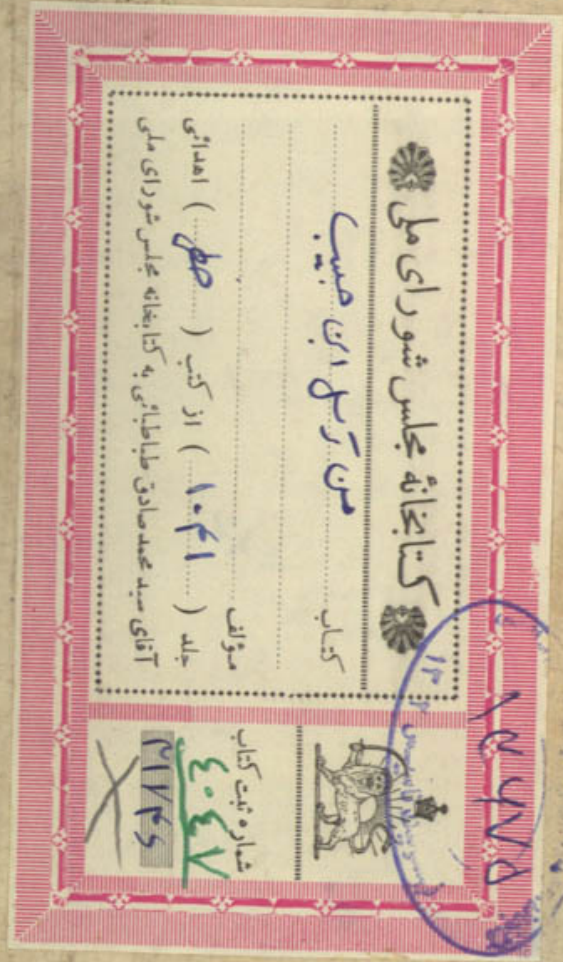 کتابخانهٔ مجلس شورای ملی
کتاب
من رسل ابن حبیب
مؤلف
جلد ( ۱۰۴۱ ) از کتب ( خطی ) اهدائی
آقای سید محمد صادق طباطبائی به کتابخانه مجلس شورای ملی
شماره ثبت کتاب
٤٠٤٧